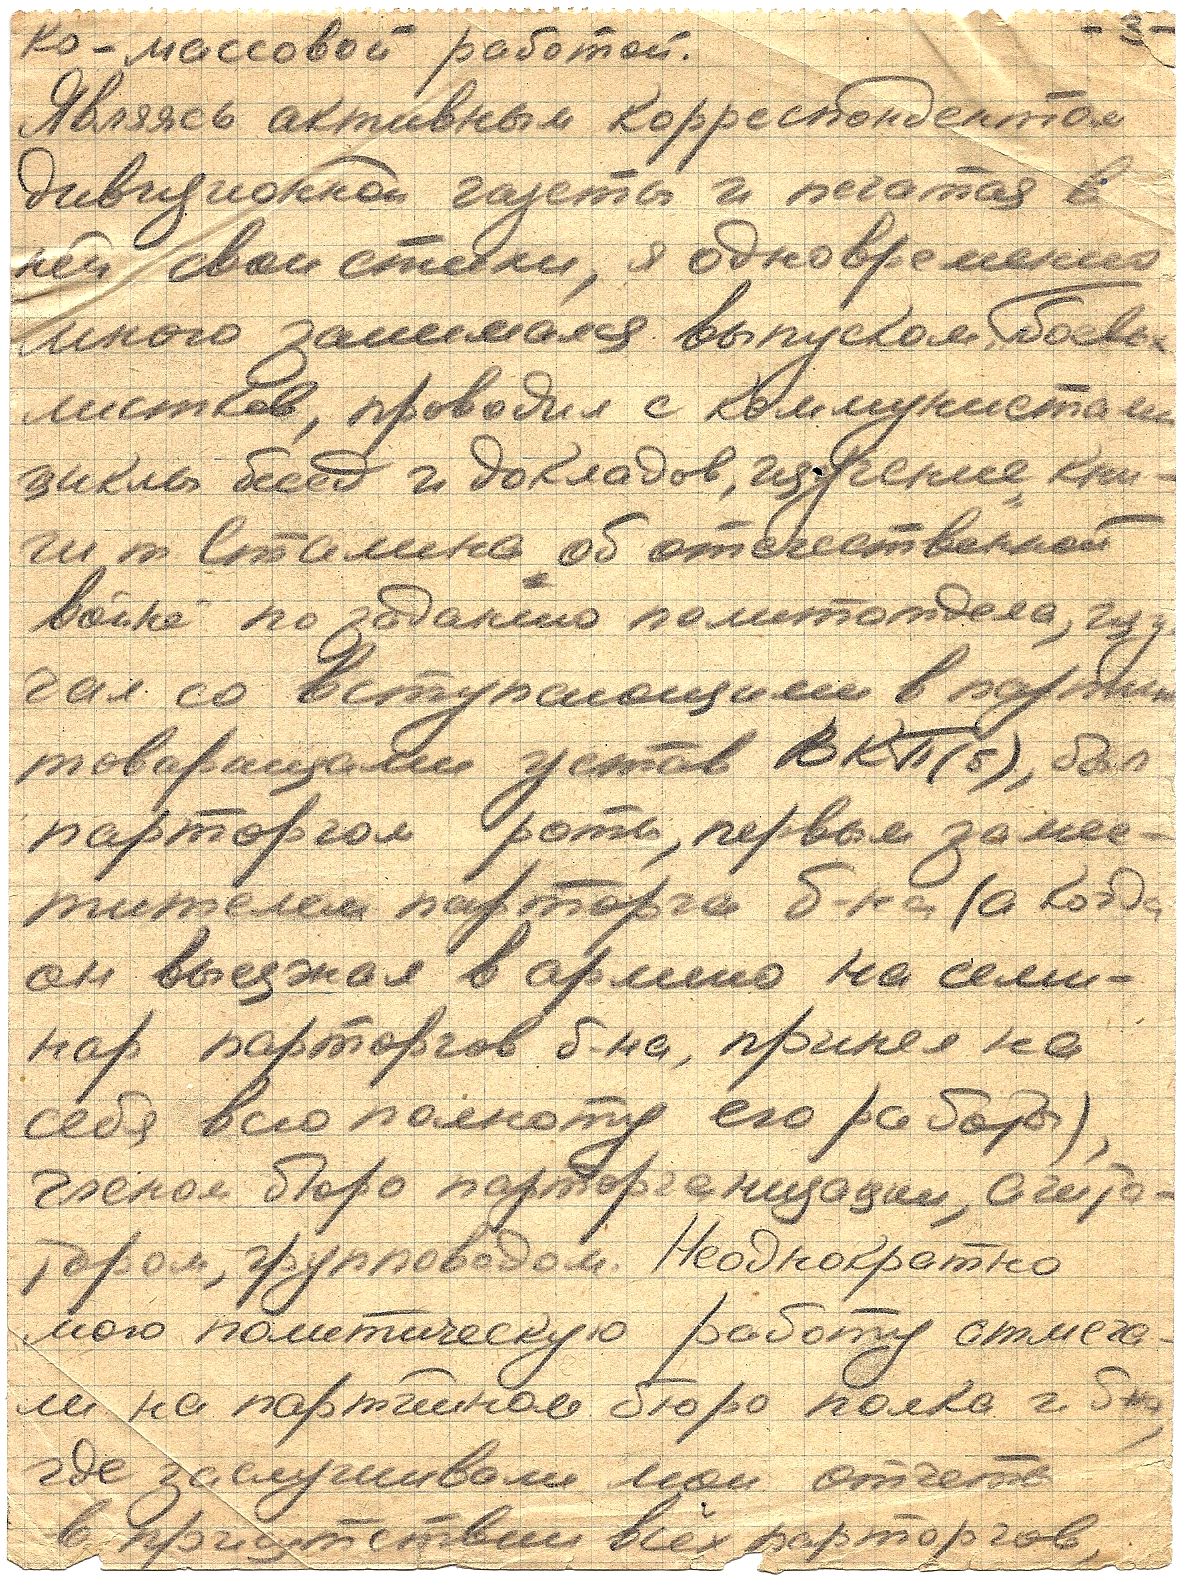 - 3 -
ко-массовой работой.
Являясь активным корреспондентом
дивизионной газеты и печатая в
ней свои стихи, я одновременно
много занимался выпуском боевых
листков, проводил с коммунистами
циклы бесед и докладов, изучение кни-
ги т Сталина „об отечественной
войне" по заданию политотдела, изу-
чал со вступающими в партию
товарищами устав ВКП(б), был
парторгом роты, первым замес-
тителем парторга б-на (а когда
он выезжал в армию на семи-
нар парторгов б-на, принял на
себя всю полноту его работы),
членом бюро парторганизации, агита-
тором, групповодом. Неоднократно
мою политическую работу отмеча-
ли на партийном бюро полка и б-на,
где заслушивали мои отчеты
в присутствии всех парторгов,